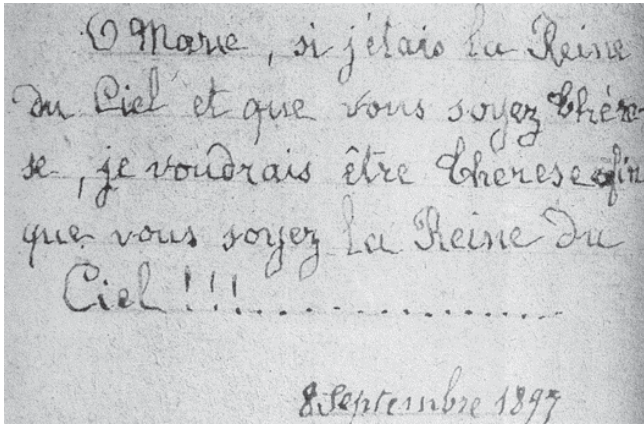 O Marie, si j'étais la Reine
du Ciel et que vous soyez Thérè-
se, je voudrais être Thérèse afin
que vous soyez la Reine du
Ciel !!!................
8 Septembre 1897